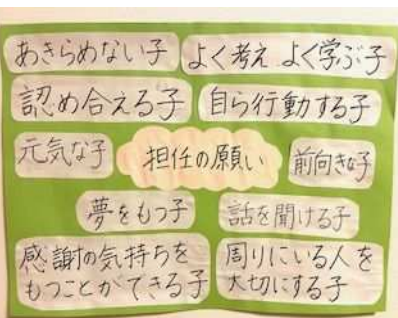 あきらめない子
よく考え よく学ぶ子
認め合える子
自ら行動する子
元気な子
担任の願い
前向きな子
夢をもつ子
話を聞ける子
感謝の気持ちを
もつことができる子
周りにいる人を
大切にする子